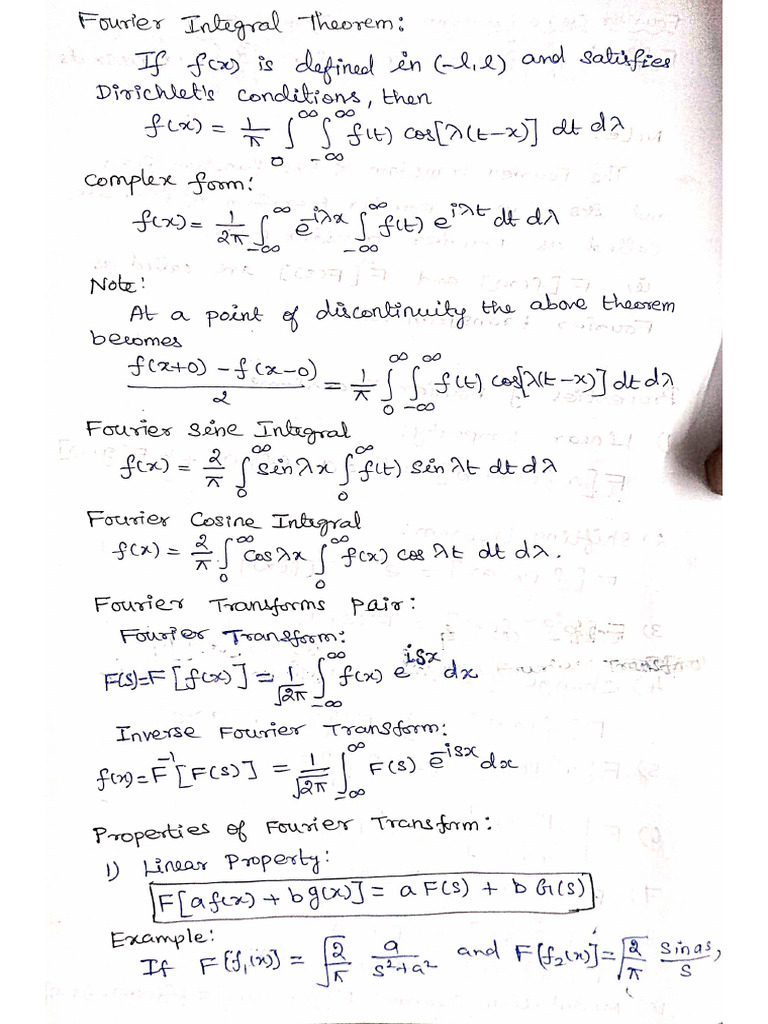 Fourier Integral Theorem:
If f(x) is defined in (-l, l) and satisfies
Dirichlet's conditions, then
f(x) = 1/π ∫₀^∞ ∫₋∞^∞ f(t) cos[λ(t-x)] dt dλ
complex form:
f(x) = 1/2π ∫₋∞^∞ e^(-iλx) ∫₋∞^∞ f(t) e^(iλt) dt dλ
Note:
At a point of discontinuity the above theorem
becomes
(f(x+0) - f(x-0))/2 = 1/π ∫₀^∞ ∫₋∞^∞ f(t) cos[λ(t-x)] dt dλ
Fourier Sine Integral
f(x) = 2/π ∫₀^∞ sin λx ∫₀^∞ f(t) sin λt dt dλ
Fourier Cosine Integral
f(x) = 2/π ∫₀^∞ cos λx ∫₀^∞ f(x) cos λt dt dλ.
Fourier Transforms Pair:
Fourier Transform:
F(s) = F[f(x)] = 1/√2π ∫₋∞^∞ f(x) e^(isx) dx
Inverse Fourier Transform:
f(x) = F⁻¹[F(s)] = 1/√2π ∫₋∞^∞ F(s) e^(-isx) dx
Properties of Fourier Transform:
1) Linear Property:
F[af(x) + bg(x)] = a F(s) + b G(s)
Example:
If F[f₁(x)] = √(2/π) a/(s²+a²) and F[f₂(x)] = √(2/π) sin as/s,